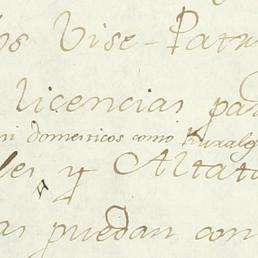 os Vise-Patr
licencias pa
ni domesticos como Ruralg
les y Altat
as puedan con